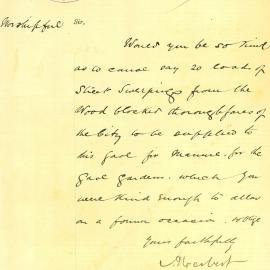 Worshipful Sir,
Would you be so kind
as to cause say 20 loads of
Street Sweepings from the
Wood blocked thoroughfares of
the City to be supplied to
this Gaol for Manure for the
Gaol gardens, which you
were kind enough to allow
on a former occasion.
Yours faithfully
Herbert